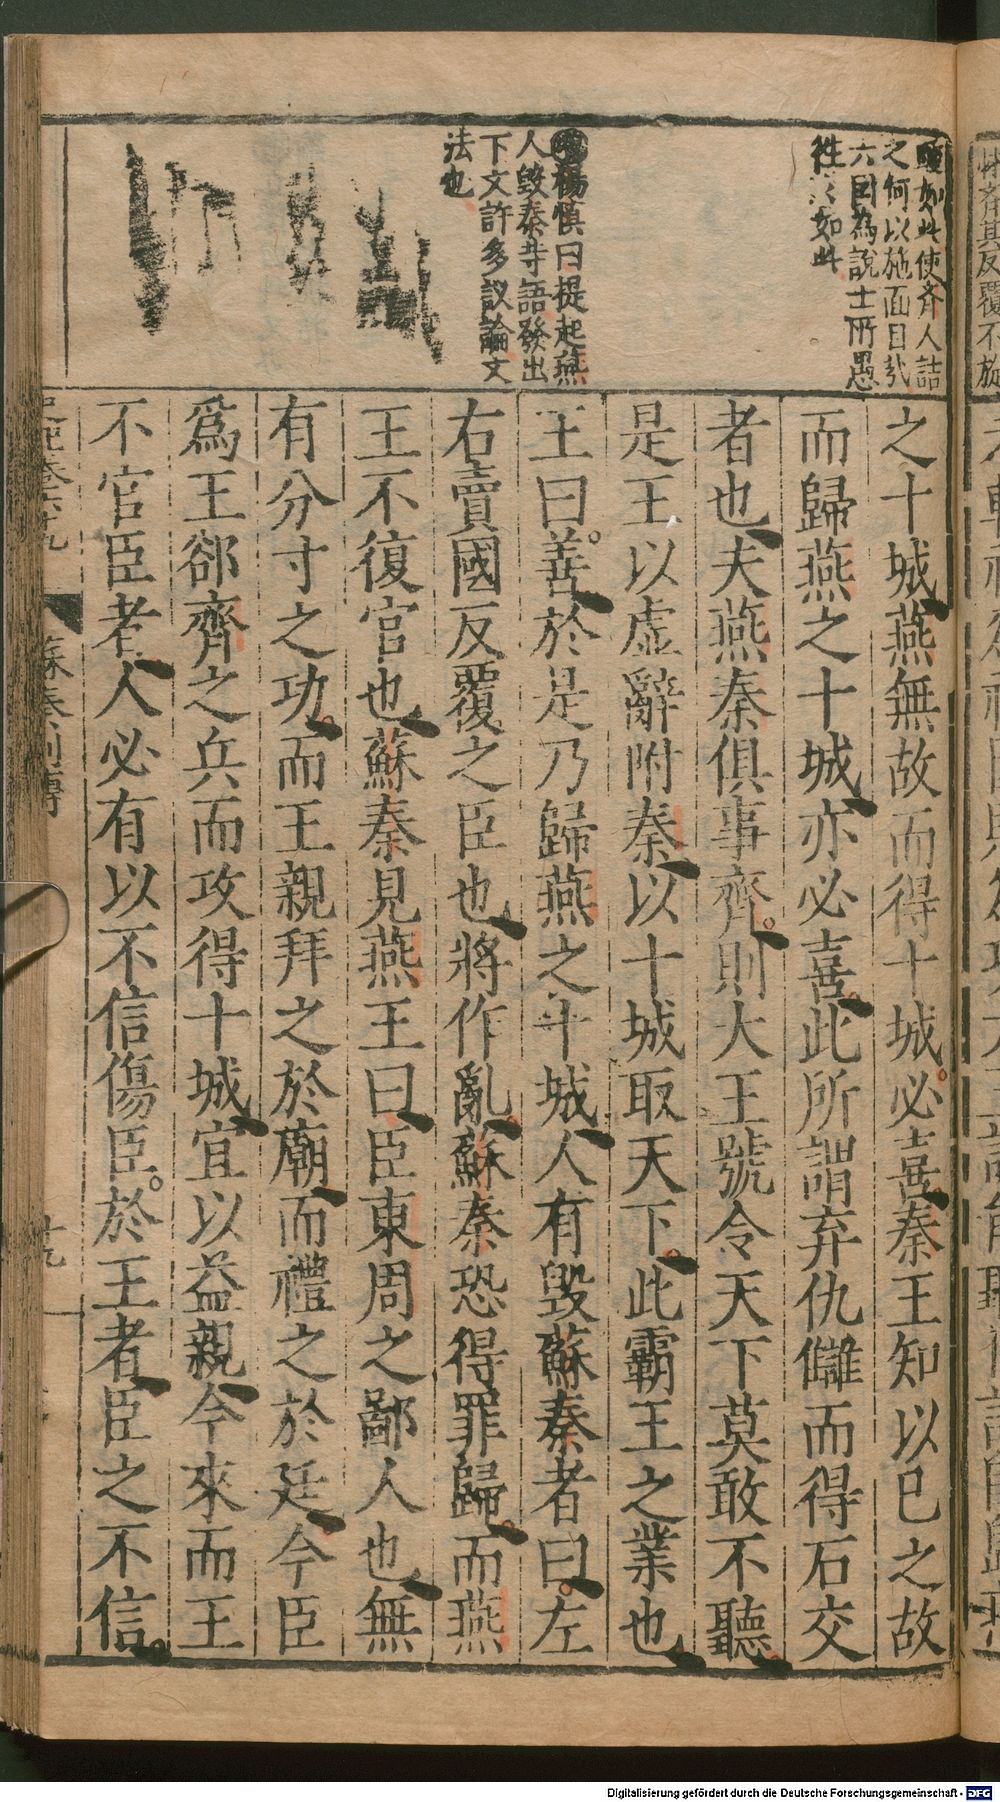 暖如此使齊人詰
之何以施面目㢤
六國為說士所愚
徃如此
楊慎曰提起燕
人毀秦等語發出
下文許多議論文
法也
之十城燕無故而得十城必喜秦王知以已之故
而歸燕之十城亦必喜此所謂弃仇讎而得石交
者也夫燕秦俱事齊則大王號令天下莫敢不聽
是王以虛辭附秦以十城取天下此霸王之業也
王曰善於是乃歸燕之十城人有毀蘇秦者曰左
右賣國反覆之臣也將作亂蘇秦恐得罪歸而燕
王不復官也蘇秦見燕王曰臣東周之鄙人也無
有分寸之功而王親拜之於廟而禮之於廷今臣
爲王郤齊之兵而攻得十城宜以益親今來而王
不官臣者人必有以不信傷臣於王者臣之不信
史記卷六十九
蘇秦列傳
十九
Digitalisierung gefördert durch die Deutsche Forschungsgemeinschaft - DFG